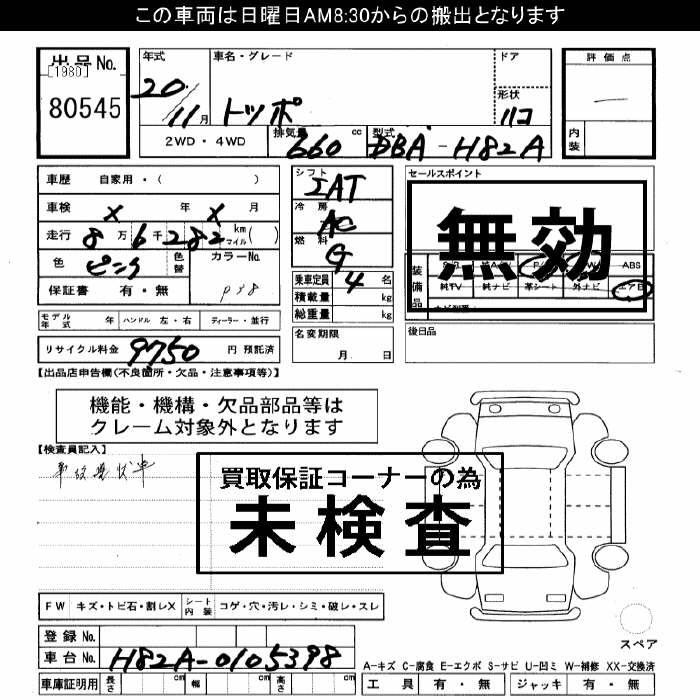 この車両は日曜日AM8:30からの搬出となります
出品No. 年式 車名・グレード ドア 評価点
[1980]
80545 20/11月 トッポ 形状 ハコ
2WD・4WD 排気量 660 cc 型式 DBA-H82A 内装
車歴 自家用・( ) シフト IAT セールスポイント
車検 X 年 X 月 冷房 AC
走行 8万6千282 km マイル( ) 燃料 G 無効
色 ピンク 色替 カラーNo. P38 乗車定員 4 名 装備品 ABS
保証書 有・無 積載量 kg 純TV 純ナビ 革シート 外ナビ エアB
総重量 kg
モデル年式 年 ハンドル 左・右 ディーラー・並行 名変期限 月 日 後日品
リサイクル料金 9750 円 預託済
【出品店申告欄(不良箇所・欠品・注意事項等)】
機能・機構・欠品部品等は
クレーム対象外となります
【検査員記入】
事故現状車
買取保証コーナーの為
未検査
FW キズ・トビ石・割レX シート内装 コゲ・穴・汚レ・シミ・破レ・スレ
登録No. スペア
車台No. H82A-0105398
A-キズ C-腐食 E-エクボ S-サビ U-凹ミ W-補修 XX-交換済
車庫証明用 長さ cm 幅 cm 高さ cm 工具 有・無 ジャッキ 有・無